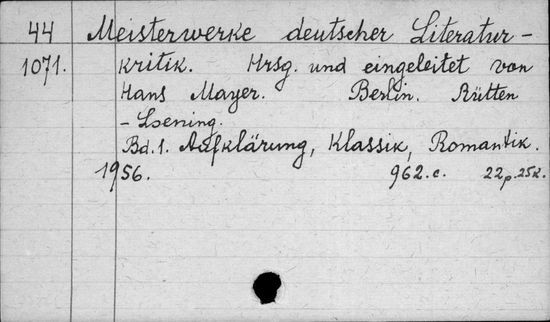 44 Meisterwerke deutscher Literatur-
1071. kritik. Hrsg. und eingeleitet von
Hans Mayer. Berlin. Rütten
-Loening.
Bd.1. Aufklärung, Klassik, Romantik.
1956. 962.c. 22p.25k.